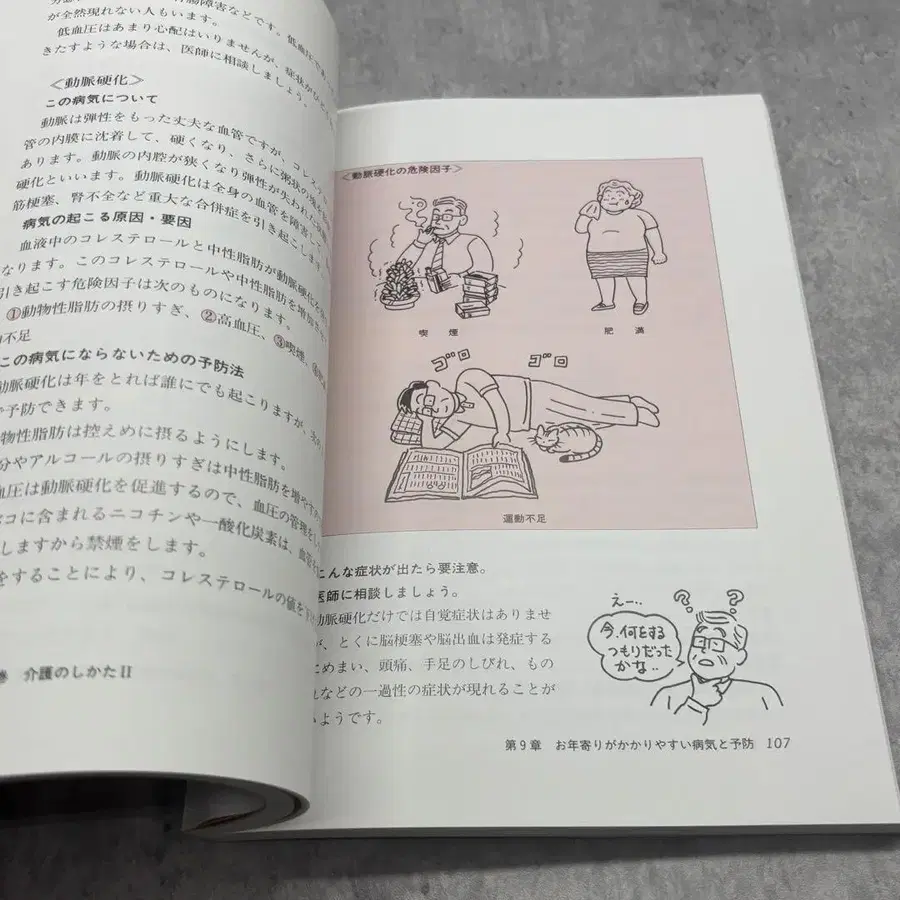 が全然現れない人もいます。
低血圧はあまり心配はいりませんが、症状がひど
きたすような場合は、医師に相談しましょう。
〈動脈硬化〉
この病気について
動脈は弾性をもった丈夫な血管ですが、コレス
管の内膜に沈着して、硬くなり、さらに粥状の塊を
あります。動脈の内腔が狭くなり弾性が失われた
硬化といいます。動脈硬化は全身の血管を障害して
筋梗塞、腎不全など重大な合併症を引き起こします。
病気の起こる原因・要因
血液中のコレステロールと中性脂肪が動脈硬化を
なります。このコレステロールや中性脂肪を増加
引き起こす危険因子は次のものになります。
①動物性脂肪の摂りすぎ、②高血圧、③喫煙、④
不足
この病気にならないための予防法
動脈硬化は年をとれば誰にでも起こりますが、
で予防できます。
物性脂肪は控えめに摂るようにします。
分やアルコールの摂りすぎは中性脂肪を増やす
血圧は動脈硬化を促進するので、血圧の管理をし
バコに含まれるニコチンや一酸化炭素は、血管
しますから禁煙をします。
をすることにより、コレステロールの値を下げ
巻 介護のしかたⅡ
〈動脈硬化の危険因子〉
喫煙
肥満
ゴロ ゴロ
運動不足
こんな症状が出たら要注意。
医師に相談しましょう。
動脈硬化だけでは自覚症状はありませ
が、とくに脳梗塞や脳出血は発症する
にめまい、頭痛、手足のしびれ、もの
れなどの一過性の症状が現れることが
いようです。
えー‥
? ?
今、何をする
つもりだった
かな‥
第9章 お年寄りがかかりやすい病気と予防 107